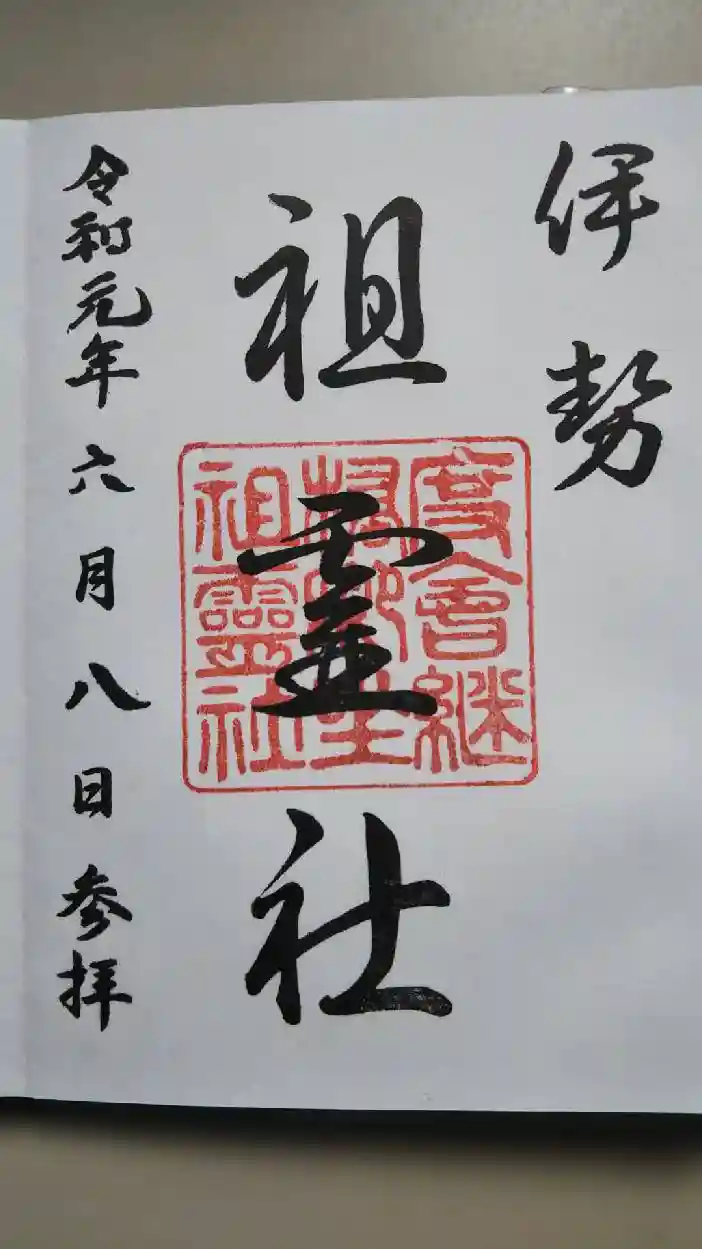 伊勢
祖霊社
令和元年六月八日参拝
度會継
祖靈社